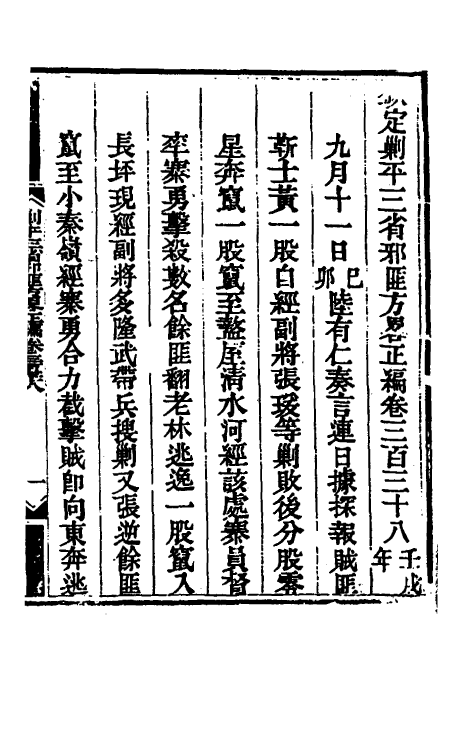 欽定剿平三省邪匪方畧正編卷三百三十八 壬戌年
九月十一日己卯陸有仁奏言連日據探報賊匪
靳士黃一股自經副將張瑗等剿敗後分股零
星奔竄一股竄至盩厔清水河經該處寨員督
率寨勇擊殺數名餘匪翻老林逃逸一股竄入
長坪現經副將多隆武帶兵搜剿又張逆餘匪
竄至小秦嶺經寨勇合力截擊賊卽向東奔逃
剿平三省邪匪方畧正編卷三百三十八
一